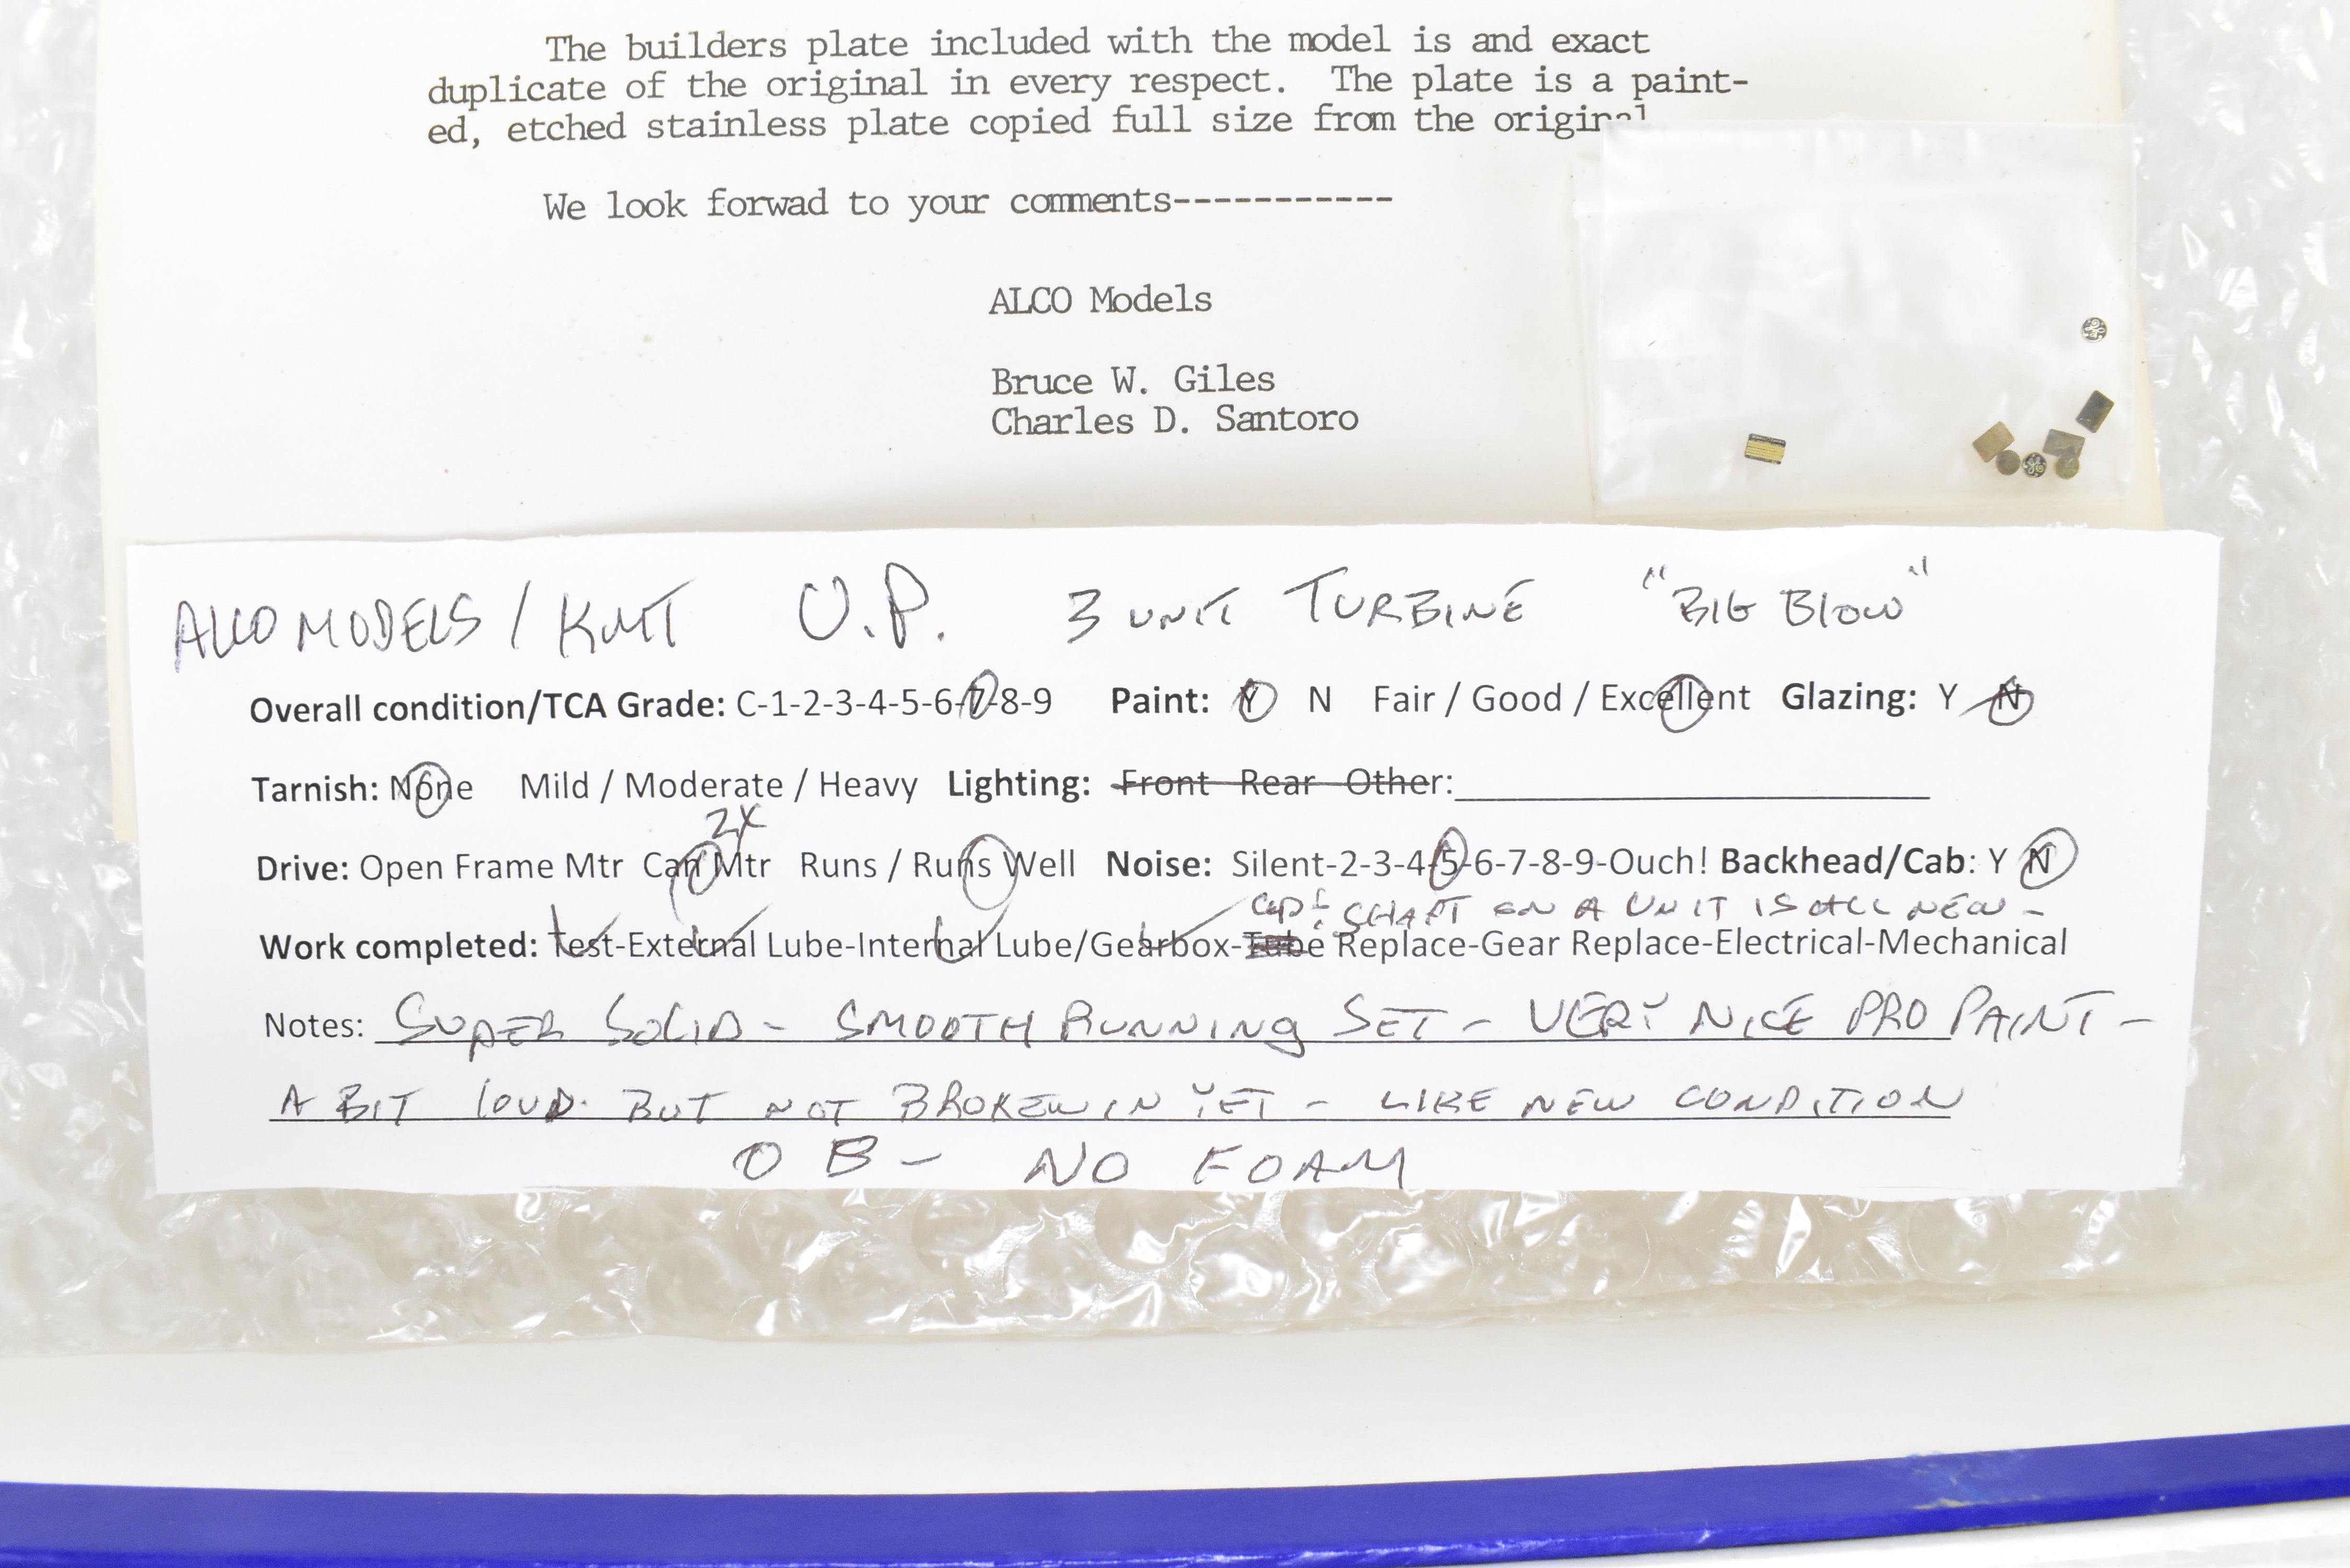 The builders plate included with the model is and exact
duplicate of the original in every respect. The plate is a paint-
ed, etched stainless plate copied full size from the original
We look forwad to your comments-----------
ALCO Models
Bruce W. Giles
Charles D. Santoro
ALCO MODELS / KMT U.P. 3 UNIT TURBINE "BIG BLOW"
Overall condition/TCA Grade: C-1-2-3-4-5-6-7-8-9 Paint: Y N Fair / Good / Excellent Glazing: Y N
Tarnish: None Mild / Moderate / Heavy Lighting: Front Rear Other:
2X
Drive: Open Frame Mtr Can Mtr Runs / Runs Well Noise: Silent-2-3-4-5-6-7-8-9-Ouch! Backhead/Cab: Y N
SHAFT ON A UNIT IS ALL NEW -
Work completed: Test-External Lube-Internal Lube/Gearbox-Tube Replace-Gear Replace-Electrical-Mechanical
Notes: SUPER SOLID - SMOOTH RUNNING SET - VERY NICE PRO PAINT -
A BIT LOUD. BUT NOT BROKEN IN YET - LIKE NEW CONDITION
OB - NO FOAM